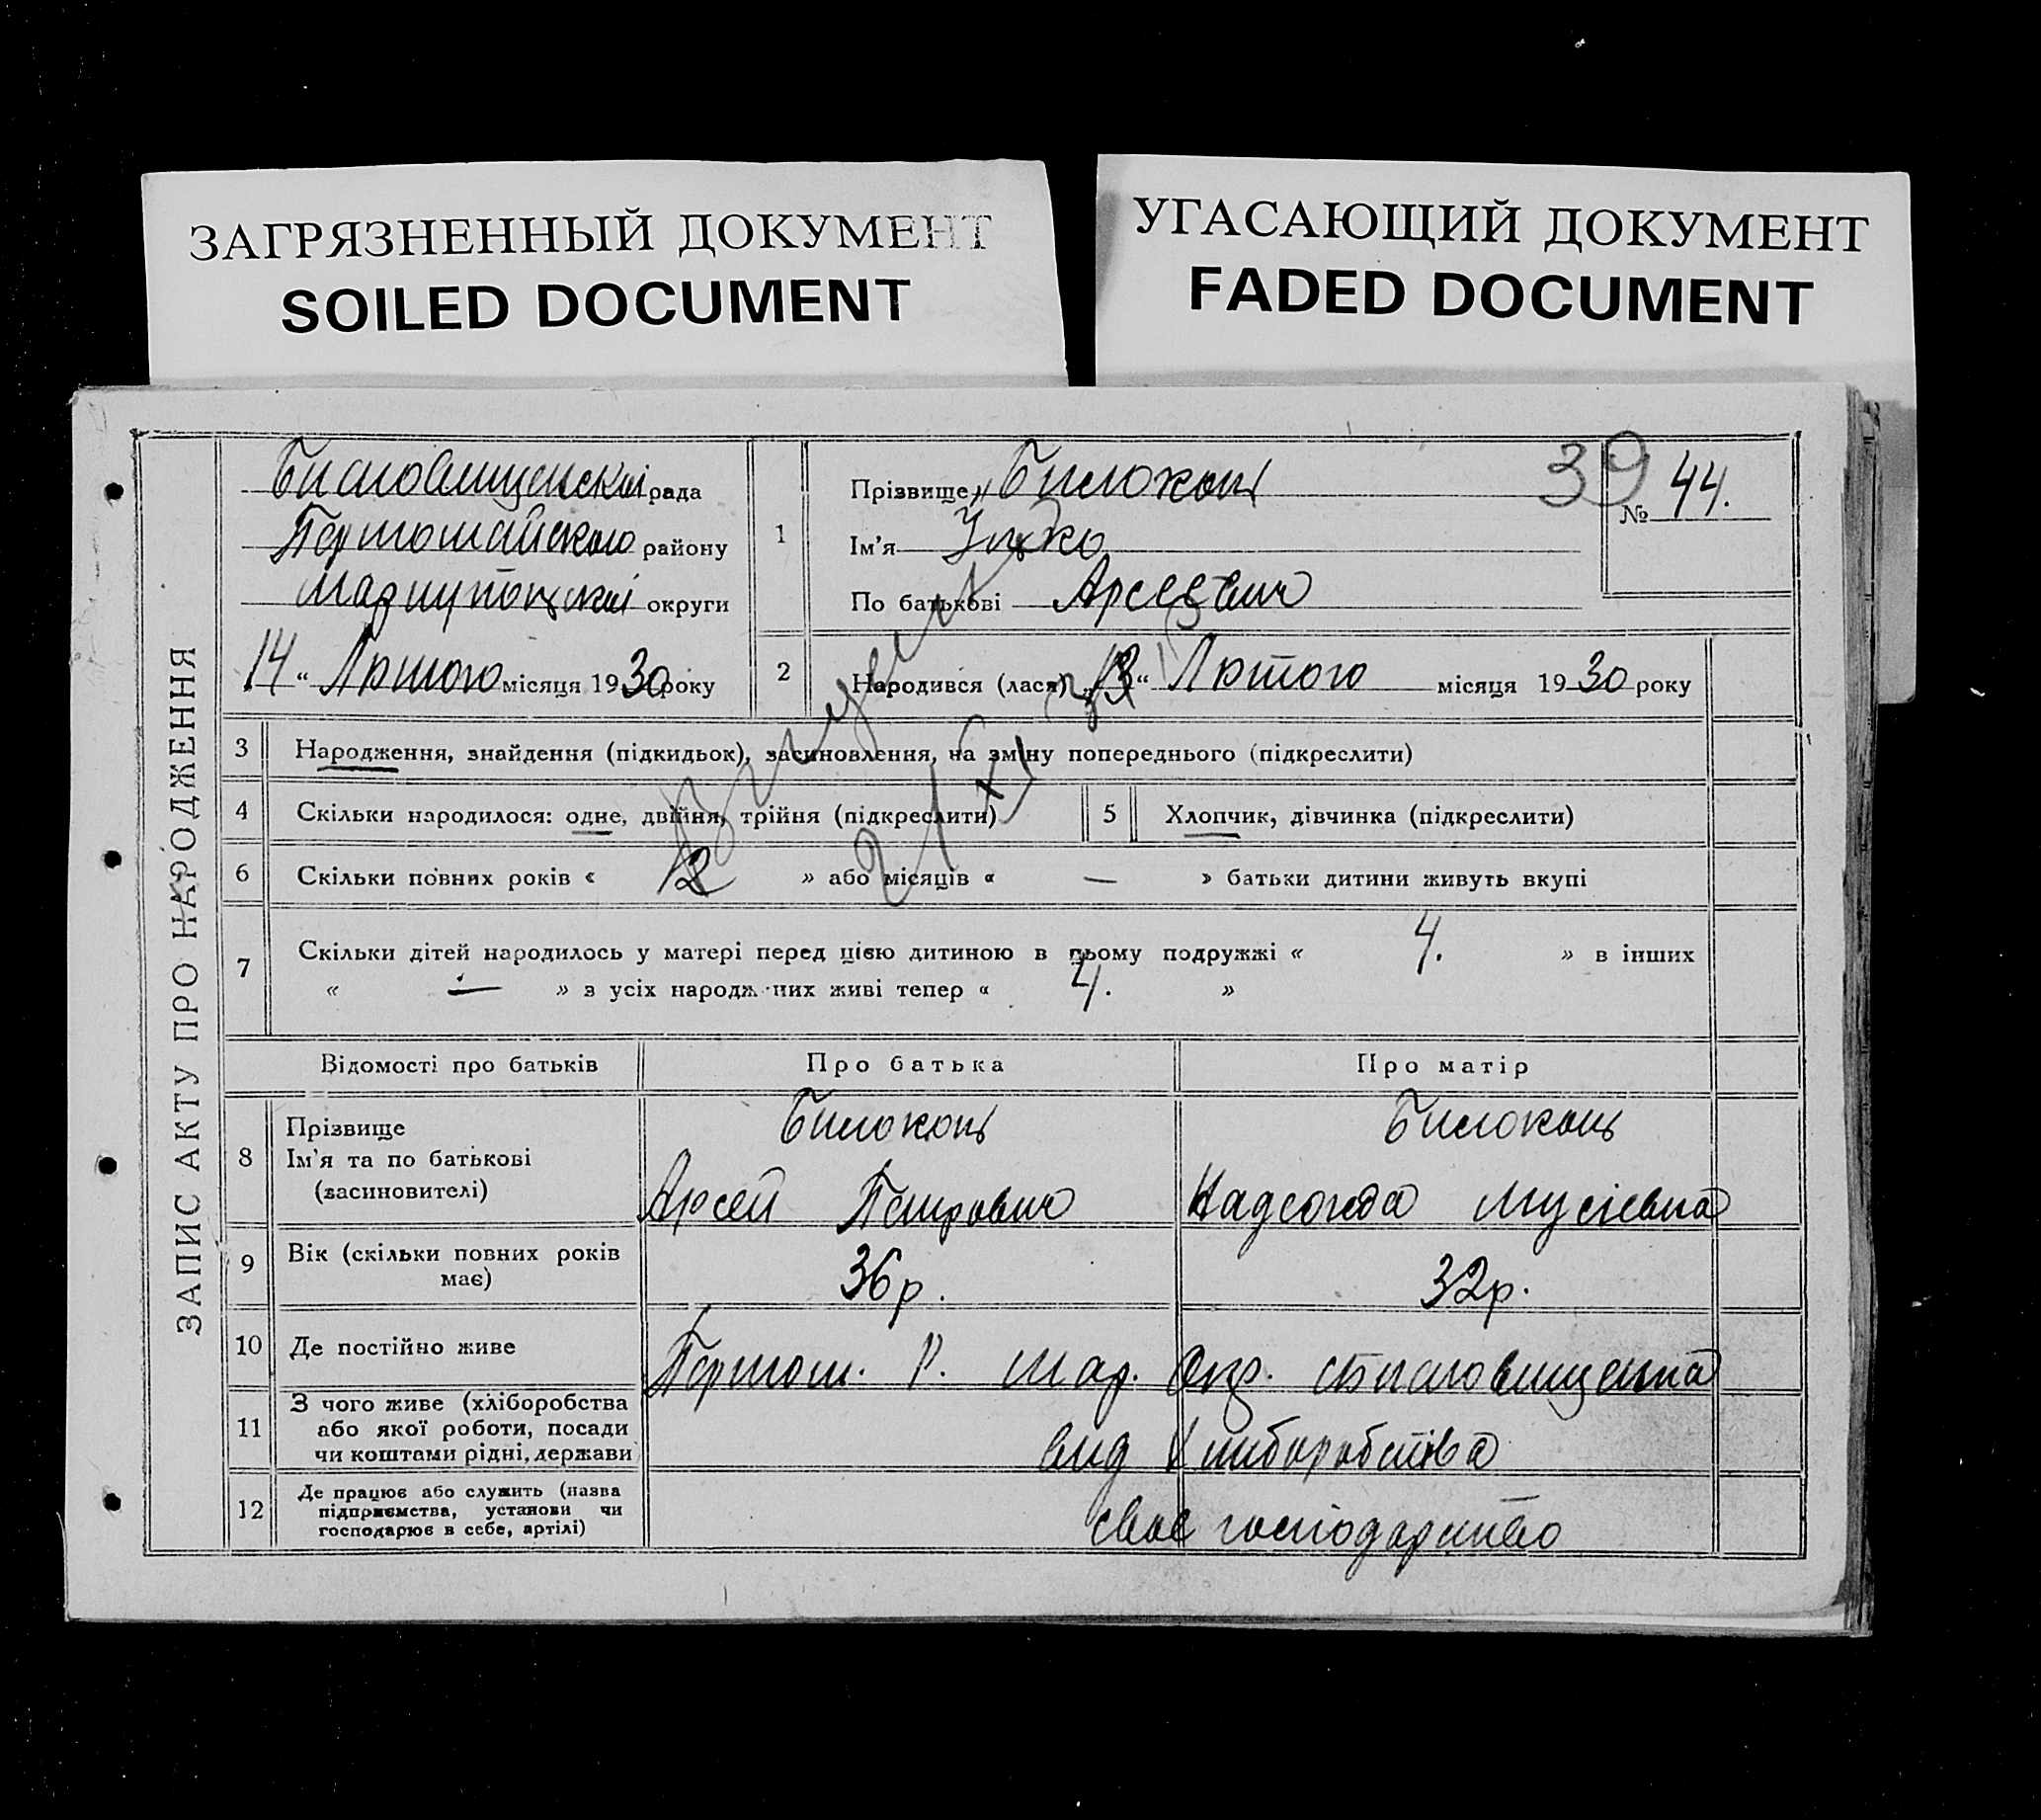 ЗАГРЯЗНЕННЫЙ ДОКУМЕНТ
SOILED DOCUMENT
УГАСАЮЩИЙ ДОКУМЕНТ
FADED DOCUMENT
ЗАПИС АКТУ ПРО НАРОДЖЕННЯ
рада
району
округи
14 “ Лютого місяця 1930 року
39
№ 44.
1
Прізвище „ Билоконь
Ім'я
По батькові Арсеевич
2
Народився (лася) „13“ Лютого місяця 1930 року
3
Народження, знайдення (підкидьок), засиновлення, на зміну попереднього (підкреслити)
4
Скільки народилося: одне, двійня, трійня (підкреслити)
5
Хлопчик, дівчинка (підкреслити)
6
Скільки повних років « 12 » або місяців « — » батьки дитини живуть вкупі
7
Скільки дітей народилось у матері перед цією дитиною в цьому подружжі « 4. » в інших
« — » з усіх народж них живі тепер « 4. »
Відомості про батьків
Про батька
Про матір
8
Прізвище
Ім'я та по батькові
(засиновителі)
Билоконь
Арсей Петрович
Билоконь
Надежда Мусіевна
9
Вік (скільки повних років
має)
36р.
32р.
10
Де постійно живе
Першом. Р. Мар. Окр.
11
З чого живе (хліборобства
або якої роботи, посади
чи коштами рідні, держави
вид хлиборобства
12
Де працює або служить (назва
підприємства, установи чи
господарює в себе, артілі)
своє господарство